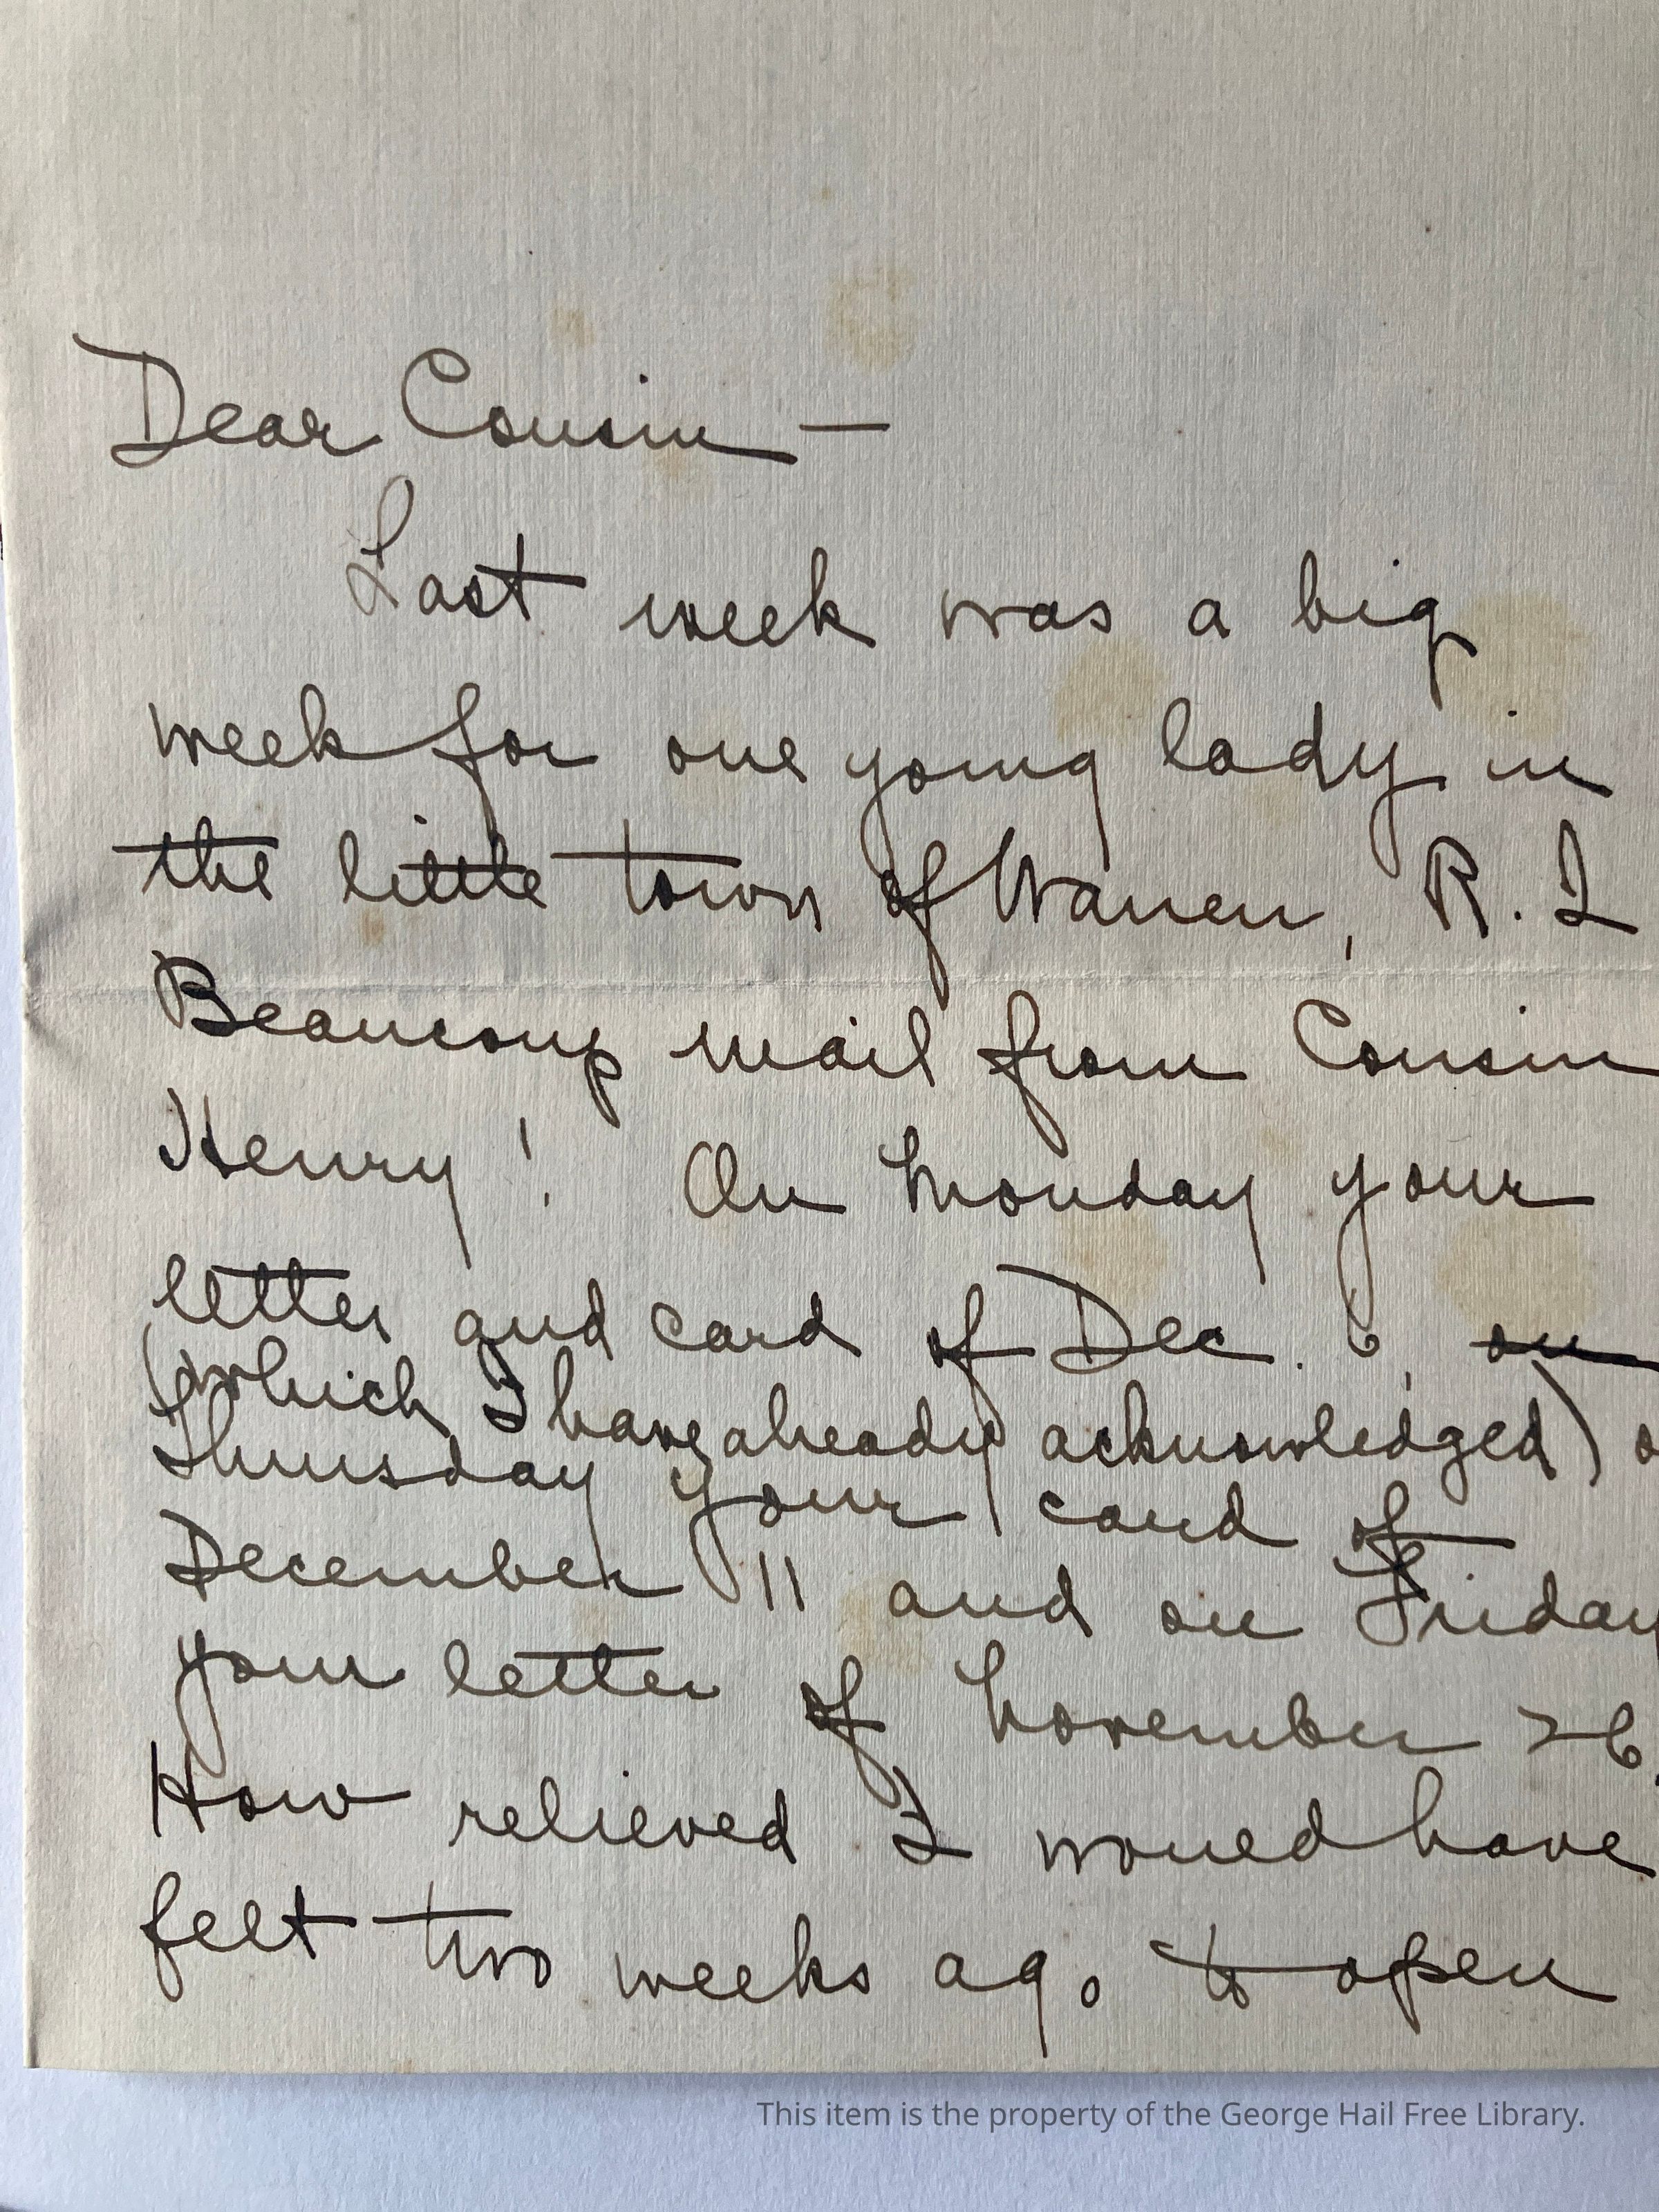 Dear Cousin —
Last week was a big
week for one young lady in
the little town of Warren, R. I
Beaucoup mail from Cousin
Henry! On Monday your
letter and card of Dec. 6, on
(which I have already acknowledged)
Thursday your card of
December 11 and on Friday
your letter of November 26.
How relieved I would have
felt two weeks ago to open
This item is the property of the George Hail Free Library.